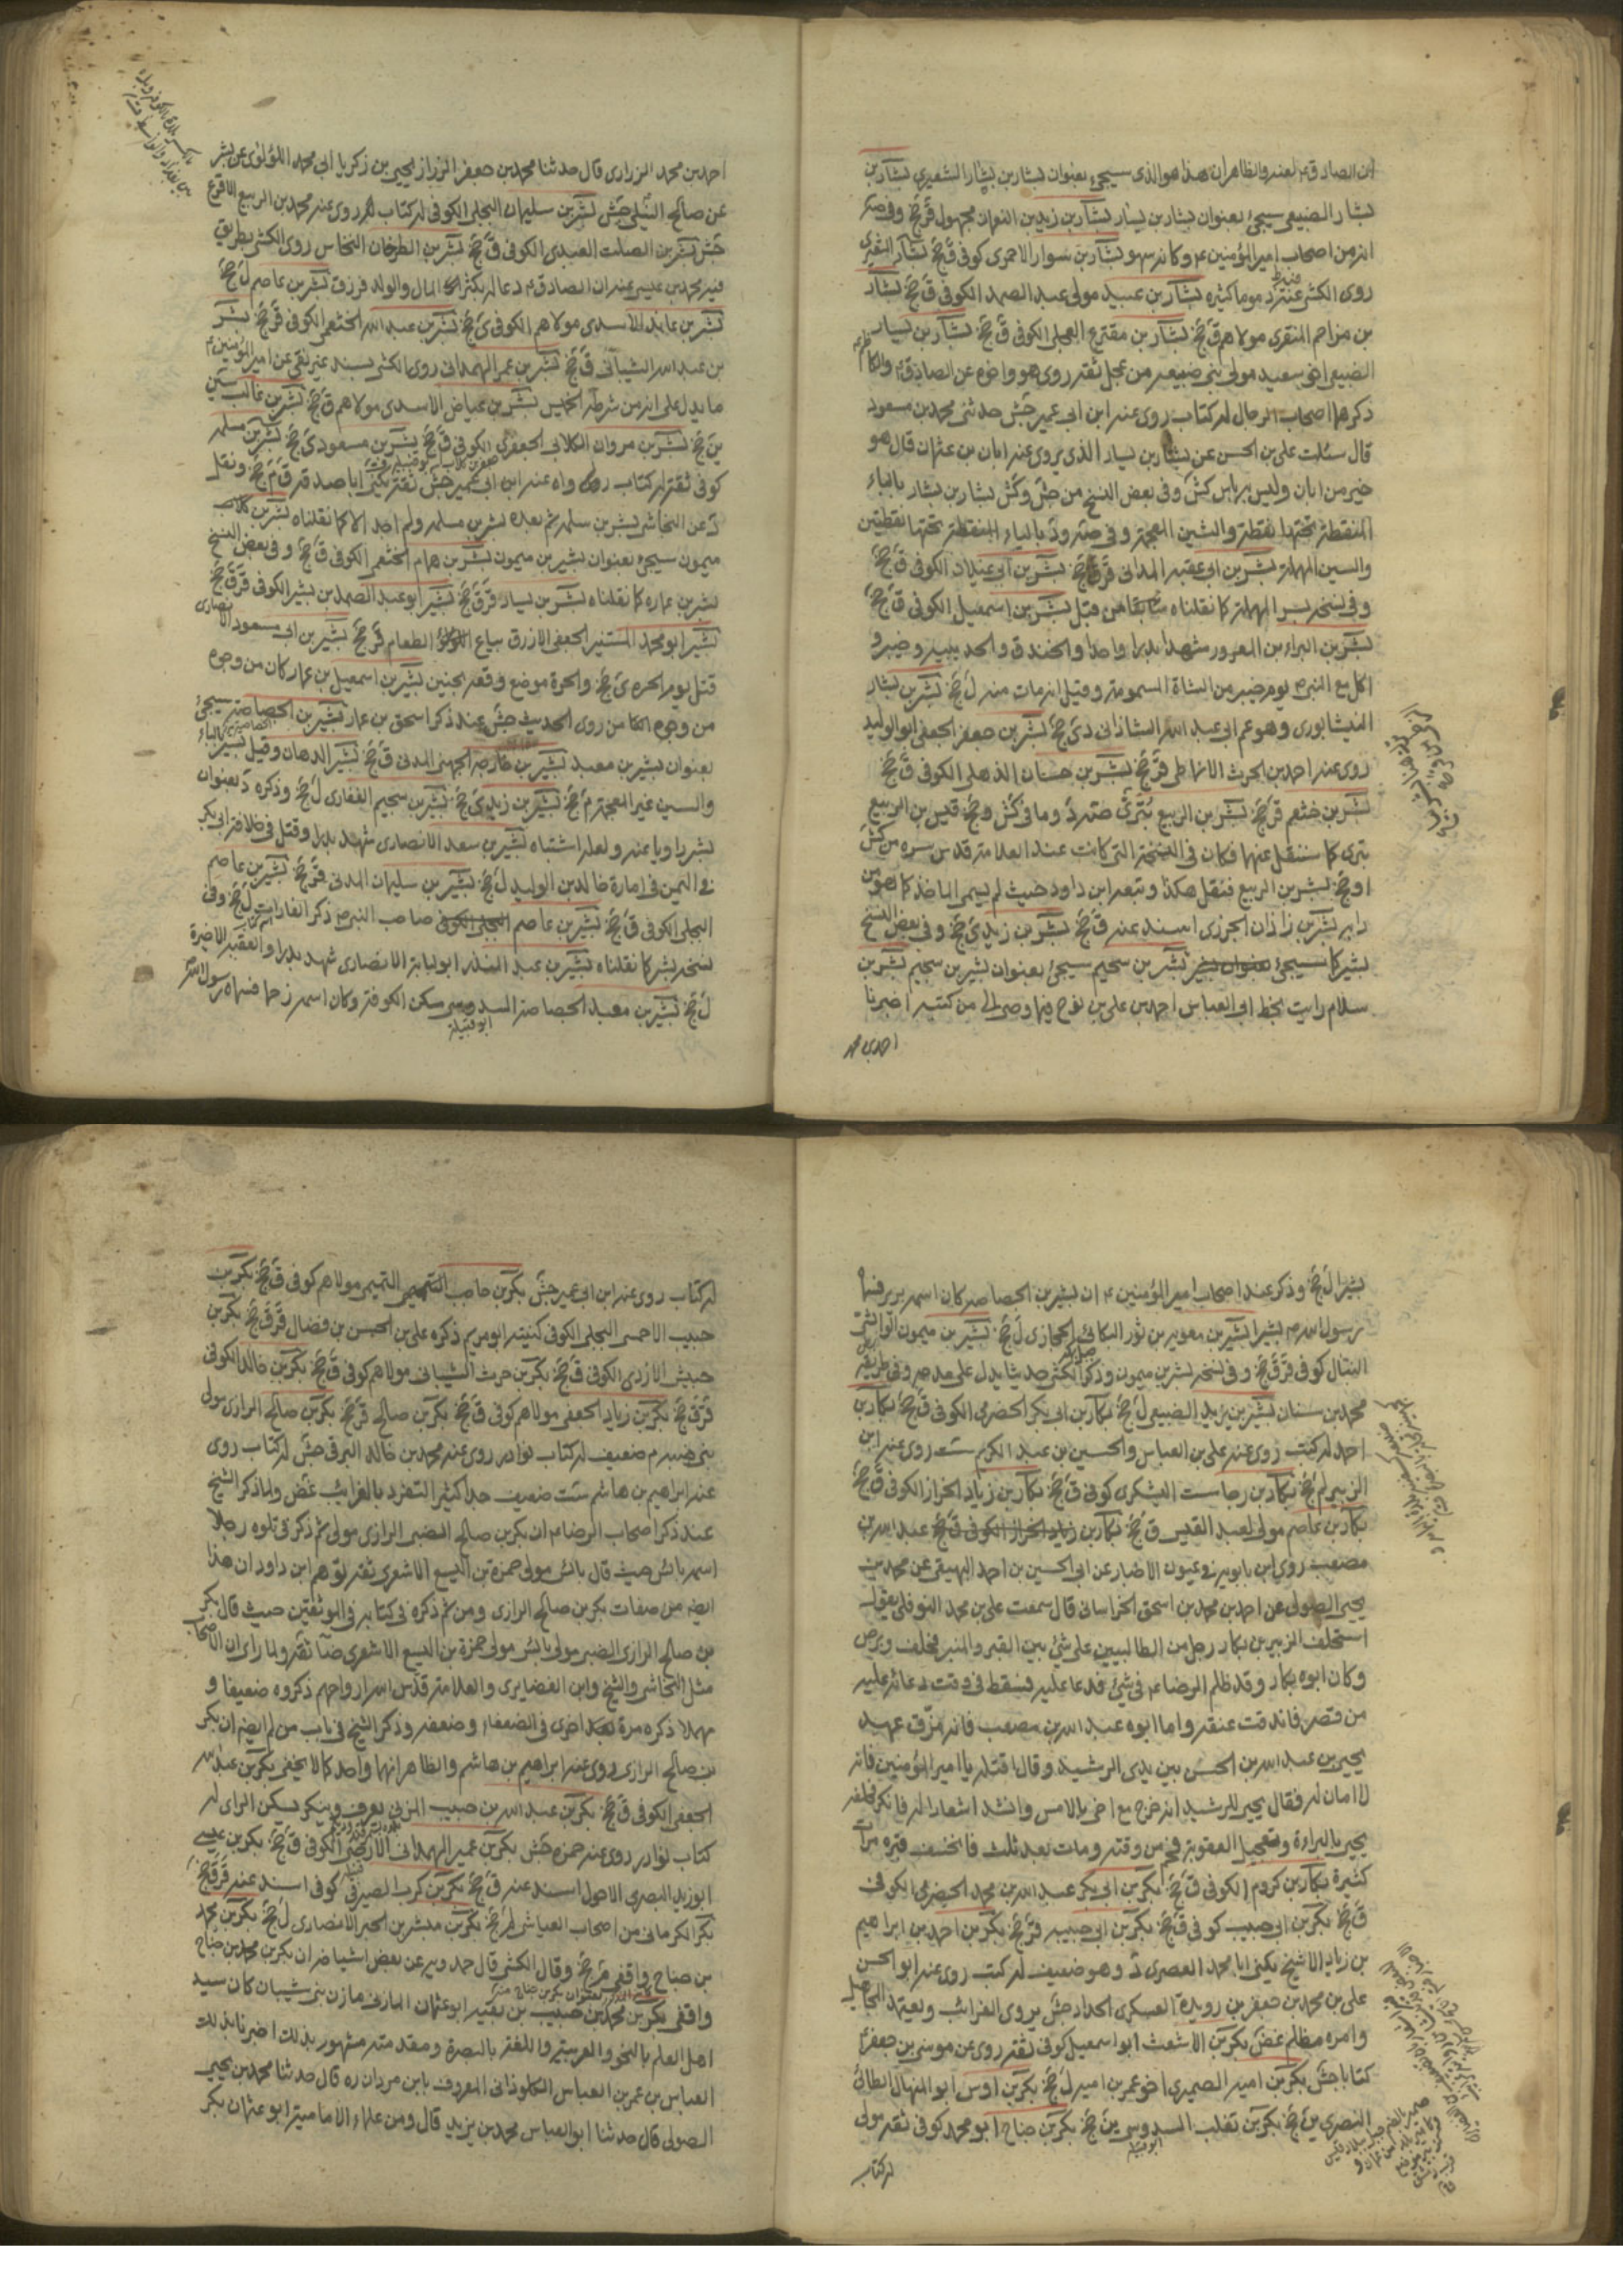 ابن الصادق ع لعنه والظاهر ان هذا هو الذی سيجیء بعنوان بشار بن بشار الشعيری بشار بن
بشار الضبيعی سيجیء بعنوان بشار بن يسار بشار بن زيد بن النعمان مجهول قر جخ وفی صه
انه من اصحاب امير المؤمنين ع وكانه سهو بشار بن سوار الاحمری كوفی ق جخ بشار الشعيری
روی الكشی عنه ذموما كثيره بشار بن عبيد مولی عبد الصمد الكوفی ق جخ بشار
بن مزاحم المنقری مولاهم ق جخ بشار بن مقترع العجلی الكوفی ق جخ بشار بن يسار
الضبيعی اخو سعيد مولی بنی ضبيعه من عجل ثقه روی هو واخوه عن الصادق ع والكاظم ع
ذكرهما اصحاب الرجال له كتاب روی عنه ابن ابی عمير جش حدثنی محمد بن مسعود
قال سئلت علی بن الحسن عن بشار بن يسار الذی يروی عنه ابان بن عثمان قال هو
خير من ابان وليس به باس كش وفی بعض النسخ من جش وكش بشار بن بشار بالباء
المنقطة تحتها نقطة والشين المعجمة وفی صه ود بالياء المنقطة تحتها نقطتين
والسين المهملة بشر بن ابی عقبه المدائنی قر ق جخ بشر بن ابی غيلان الكوفی ق جخ
وفی نسخه بسر المهملة كما نقلناه سابقا من قبل بشر بن اسمعيل الكوفی ق جخ
بشر بن البراء بن المعرور شهد بدرا واحدا والخندق والحديبيه وخيبر و
اكل مع النبی ص يوم خيبر من الشاة المسمومة وقيل انه مات منه ل جخ بشر بن بشار
النيشابوری وهو عم ابی عبد الله الشاذانی دی جخ بشر بن جعفر الجعفی ابو الوليد
روی عنه احمد بن الحرث الانماطی قر جخ بشر بن حسان الذهلی الكوفی ق جخ
بشر بن خثعم قر جخ بشر بن الربيع بتری صه د وما فی كش وجخ قيس بن الربيع
بتری كما سننقل عنهما فكان فی النسخة التی كانت عند العلامة قدس سره من كش
او جخ بشر بن الربيع فنقل هكذا وتبعه ابن داود حيث لم يسم الماخذ كما هو من
دابه بشر بن زاذان الجزری اسند عنه ق جخ بشر بن زيد ی جخ وفی بعض النسخ
بشير كما سيجیء بشر بن سحيم سيجیء بعنوان بشير بن سحيم بشر بن
سلام رايت بخط ابی العباس احمد بن علی بن نوح فيما وصی الی من كتبه اخبرنا
احمد بن محمد
احمد بن محمد الزراری قال حدثنا محمد بن جعفر الرزاز يحيی بن زكريا ابی محمد اللؤلؤی عن بشر
عن صالح النيلی جش بشر بن سليمان البجلی الكوفی له كتاب روی عنه محمد بن الربيع الاقرع
جش بشر بن الصلت العبدی الكوفی ق جخ بشر بن الطرخان النخاس روی الكشی بطريق
فيه محمد بن عيسی عنه ان الصادق ع دعا له بكثرة المال والولد فرزق بشر بن عاصم ل جخ
بشر بن عايذ الاسدی مولاهم الكوفی ق جخ بشر بن عبد الله الخثعمی الكوفی قر جخ بشر
بن عبد الله الشيبانی ق جخ بشر بن عمر الهمدانی روی الكشی بسند غير نقی عن امير المؤمنين ع
ما يدل علی انه من شرطة الخميس بشر بن عياض الاسدی مولاهم ق جخ بشر بن غالب سين
ين جخ بشر بن مروان الكلابی الجعفری الكوفی ق جخ بشر بن مسعود ی جخ بشر بن مسلمه
كوفی ثقة له كتاب رواه عنه ابن ابی عمير جش ثقة يكنی ابا صدقه ق م جخ ونقل
د عن النجاشی بشر بن سلمه ثم بعده بشر بن مسلمه ولم اجد الا كما نقلناه بشر بن
ميمون سيجیء بعنوان بشير بن ميمون بشر بن همام الخثعمی الكوفی ق جخ وفی بعض النسخ
بشر بن عماره كما نقلناه بشر بن يسار قر ق جخ بشير ابو عبد الصمد بن بشر الكوفی قر ق جخ
بشير ابو محمد المستنير الجعفی الازرق بياع الطعام قر جخ بشير بن ابی مسعود الانصاری
قتل يوم الحره ی جخ والحرة موضع وقعة بحنين بشير بن اسمعيل بن عمار كان من وجوه
من وجوه من روی الحديث جش عند ذكر اسحق بن عمار بشير بن الخصاصة سيجیء
بعنوان بشير بن معبد بشير بن خارجه الجهنی المدنی ق جخ بشير الدهان وقيل يسير بالياء
والسين غير المعجمة م جخ بشير بن زيد ی جخ بشير بن سحيم الغفاری ل جخ وذكره د بعنوان
بشر راويا عنه ولعله اشتباه بشير بن سعد الانصاری شهد بدرا وقتل فی خلافة ابی بكر
فی اليمن فی امارة خالد بن الوليد ل جخ بشير بن سليمان المدنی قر جخ بشير بن عاصم
البجلی الكوفی ق جخ بشير بن عاصم صاحب النبی ص ذكر انفا ل جخ وفی
نسخه بشر كما نقلناه بشير بن عبد المنذر ابو لبابة الانصاری شهد بدرا والعقبة الاخيرة
ل جخ بشير بن معبد الخصاصة السدوسی سكن الكوفة وكان اسمه زحما فسماه رسول الله ص
بشيرا ل جخ وذكر عند اصحاب امير المؤمنين ع ان بشير بن الخصاصه كان اسمه برير فسماه
رسول الله ص بشيرا بشير بن معويه بن ثور البكائی الحجازی ل جخ بشير بن ميمون الوابشی
النبال كوفی قر ق جخ وفی نسخه بشر بن ميمون وذكر الكشی حديثا يدل علی مدحه وفی طريقه
محمد بن سنان بشير بن يزيد الضبيعی ل جخ بكار بن ابی بكر الحضرمی الكوفی ق جخ بكار بن
احمد له كتب روی عنه علی بن العباس والحسين بن عبد الكريم ست روی عنه ابن
الزبير لم جخ بكار بن رجا ست اليشكری كوفی ق جخ بكار بن زياد الخزاز الكوفی ق جخ
بكار بن عاصم مولی لعبد القيس ق جخ بكار بن عبد الله بن
مصعب روی ابن بابويه فی عيون الاخبار عن ابی الحسين بن احمد البيهقی عن محمد بن
يحيی الصولی عن احمد بن محمد بن اسحق الخراسانی قال سمعت علی بن محمد النوفلی يقول
استحلف الزبير بن بكار رجل من الطالبيين علی شیء بين القبر والمنبر فحلف وبرص
وكان ابوه بكار وقد ظلم الرضا ع فی شیء فدعا عليه فسقط فی وقت دعائه عليه
من قصره فاندقت عنقه واما ابوه عبد الله بن مصعب فانه مزق عهد
يحيی بن عبد الله بن الحسن بين يدی الرشيد وقال اقتله يا امير المؤمنين فانه
لا امان له فقال يحيی للرشيد انه خرج مع اخی بالامس وانشد اشعارا له فانكر فحلفه
يحيی بالبراءة وتعجيل العقوبة فحم من وقته ومات بعد ثلث فانخسف قبره مرات
كثيرة بكار بن كردم الكوفی ق جخ بكر بن ابی بكر عبد الله بن محمد الحضرمی الكوفی
ق جخ بكر بن ابی حبيب كوفی ق جخ بكر بن ابی حبيبه قر جخ بكر بن احمد بن ابراهيم
بن زياد الاشج يكنی ابا محمد العصری د وهو ضعيف له كتب روی عنه ابو الحسن
علی بن محمد بن جعفر بن رويدة العسكری الحداد جش يروی الغرائب ويعتمد المجاهيل
وامره مظلم غض بكر بن الاشعث ابو اسمعيل كوفی ثقة روی عن موسی بن جعفر ع
كتابا جش بكر بن امية الضميری اخو عمر بن امية ل جخ بكر بن اوس ابو المنهال الطائی
البصری ين جخ بكر بن تغلب السدوسی ين جخ بكر بن جناح ابو محمد كوفی ثقه مولی
له كتاب
له كتاب روی عنه ابن ابی عمير جش بكر بن حاجب التميمی مولاهم كوفی ق جخ بكر بن
حبيب الاحمسی البجلی الكوفی كنيته ابو مريم ذكره علی بن الحسن بن فضال قر ق جخ بكر بن
حبيش الازدی الكوفی ق جخ بكر بن حرب الشيبانی مولاهم كوفی ق جخ بكر بن خالد الكوفی
قر ق جخ بكر بن زياد الجعفی مولاهم كوفی ق جخ بكر بن صالح قر جخ بكر بن صالح الرازی مولی
بنی ضبه م ضعيف له كتاب نوادر روی عنه محمد بن خالد البرقی جش له كتاب روی
عنه ابراهيم بن هاشم ست ضعيف جدا كثير التفرد بالغرائب غض ولما ذكر الشيخ
عند ذكر اصحاب الرضا ع ان بكر بن صالح الضبی الرازی مولی ثم ذكر فی تلوه رجلا
اسمه بائس حيث قال بائس مولی حمزة بن اليسع الاشعری ثقه توهم ابن داود ان هذا
ايضه من صفات بكر بن صالح الرازی ومن ثم ذكره فی كتابه فی الموثقين حيث قال بكر
بن صالح الرازی الضبی مولی بائس مولی حمزة بن اليسع الاشعری ضا ثقه ولما رای ان الاصحاب
مثل النجاشی والشيخ وابن الغضايری والعلامة قدس الله ارواحهم ذكروه ضعيفا و
مهملا ذكره مرة اخری فی الضعفاء وضعفه وذكر الشيخ فی باب من لم ايضه ان بكر
بن صالح الرازی روی عنه ابراهيم بن هاشم والظاهر انهما واحد كما لا يخفی بكر بن عبد الله
الجعفی الكوفی ق جخ بكر بن عبد الله بن حبيب المزنی يعرف وينكر يسكن الری له
كتاب نوادر روی عنه حمزه جش بكر بن عمير الهمدانی الارحبی الكوفی ق جخ بكر بن عيسی
ابو زيد البصری الاحول اسند عنه ق جخ بكر بن كرب الصيرفی كوفی اسند عنه قر ق جخ
بكر الكرمانی من اصحاب العياشی لم جخ بكر بن مبشر بن الخير الانصاری ل جخ بكر بن محمد
بن جناح واقفی م جخ وقال الكشی قال حمدويه عن بعض اشياخه ان بكر بن محمد بن جناح
واقفی بكر بن محمد بن حبيب بن بقيه ابو عثمان المازنی مازن بنی شيبان كان سيد
اهل العلم بالنحو والعربية واللغة بالبصرة ومقدمته مشهور بذلك اخبرنا بذلك
العباس بن عمر بن العباس الكلوذانی المعروف بابن مردان ره قال حدثنا محمد بن يحيی
الصولی قال حدثنا ابو العباس محمد بن يزيد قال ومن علماء الامامية ابو عثمان بكر